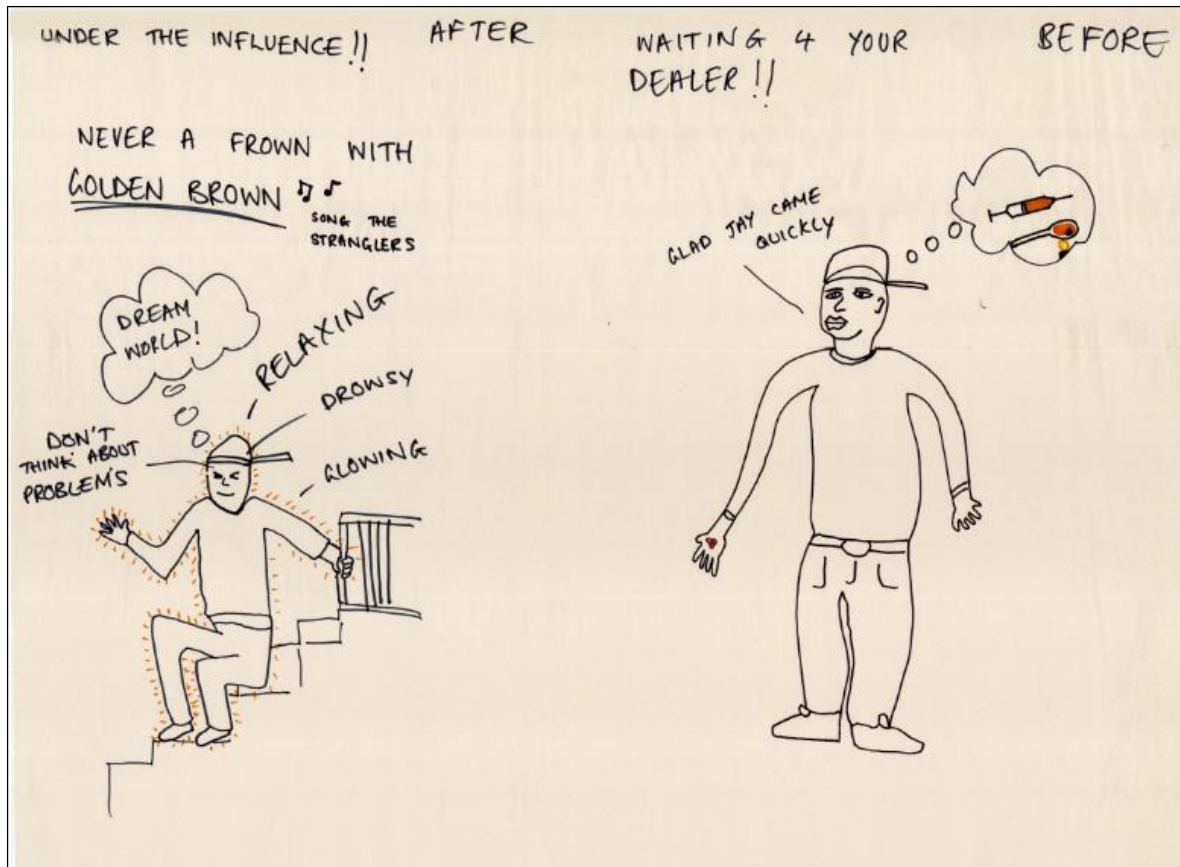 UNDER THE INFLUENCE!!
AFTER
NEVER A FROWN WITH
GOLDEN BROWN
SONG THE
STRANGLERS
DREAM
WORLD!
RELAXING
DROWSY
GLOWING
DON'T
THINK ABOUT
PROBLEM'S
WAITING 4 YOUR
DEALER!!
BEFORE
GLAD JAY CAME
QUICKLY